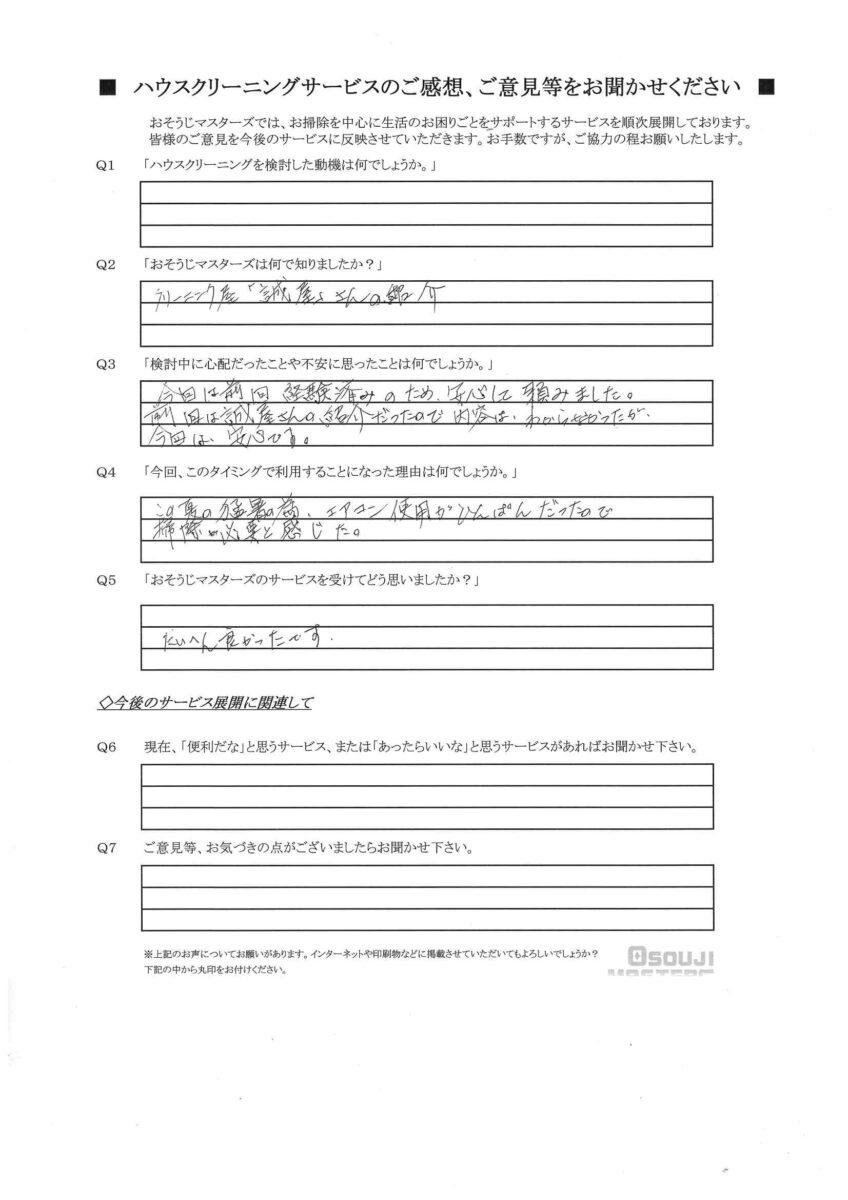 ■ ハウスクリーニングサービスのご感想、ご意見等をお聞かせください ■
おそうじマスターズでは、お掃除を中心に生活のお困りごとをサポートするサービスを順次展開しております。
皆様のご意見を今後のサービスに反映させていただきます。お手数ですが、ご協力の程お願いしたします。
Q1 「ハウスクリーニングを検討した動機は何でしょうか。」
Q2 「おそうじマスターズは何で知りましたか？」
クリーニング屋「誠屋」さんの紹介
Q3 「検討中に心配だったことや不安に思ったことは何でしょうか。」
今回は前回経験済みのため、安心して頼みました。
前回は誠屋さんの紹介だったので内容は、わからなかったが、
今回は、安心です。
Q4 「今回、このタイミングで利用することになった理由は何でしょうか。」
この夏の猛暑の為、エアコン使用がひんぱんだったので
掃除が必要と感じた。
Q5 「おそうじマスターズのサービスを受けてどう思いましたか？」
たいへん良かったです.
◇今後のサービス展開に関連して
Q6 現在、「便利だな」と思うサービス、または「あったらいいな」と思うサービスがあればお聞かせ下さい。
Q7 ご意見等、お気づきの点がございましたらお聞かせ下さい。
※上記のお声についてお願いがあります。インターネットや印刷物などに掲載させていただいてもよろしいでしょうか？
下記の中から丸印をお付けください。
OSOUJI
MASTERS